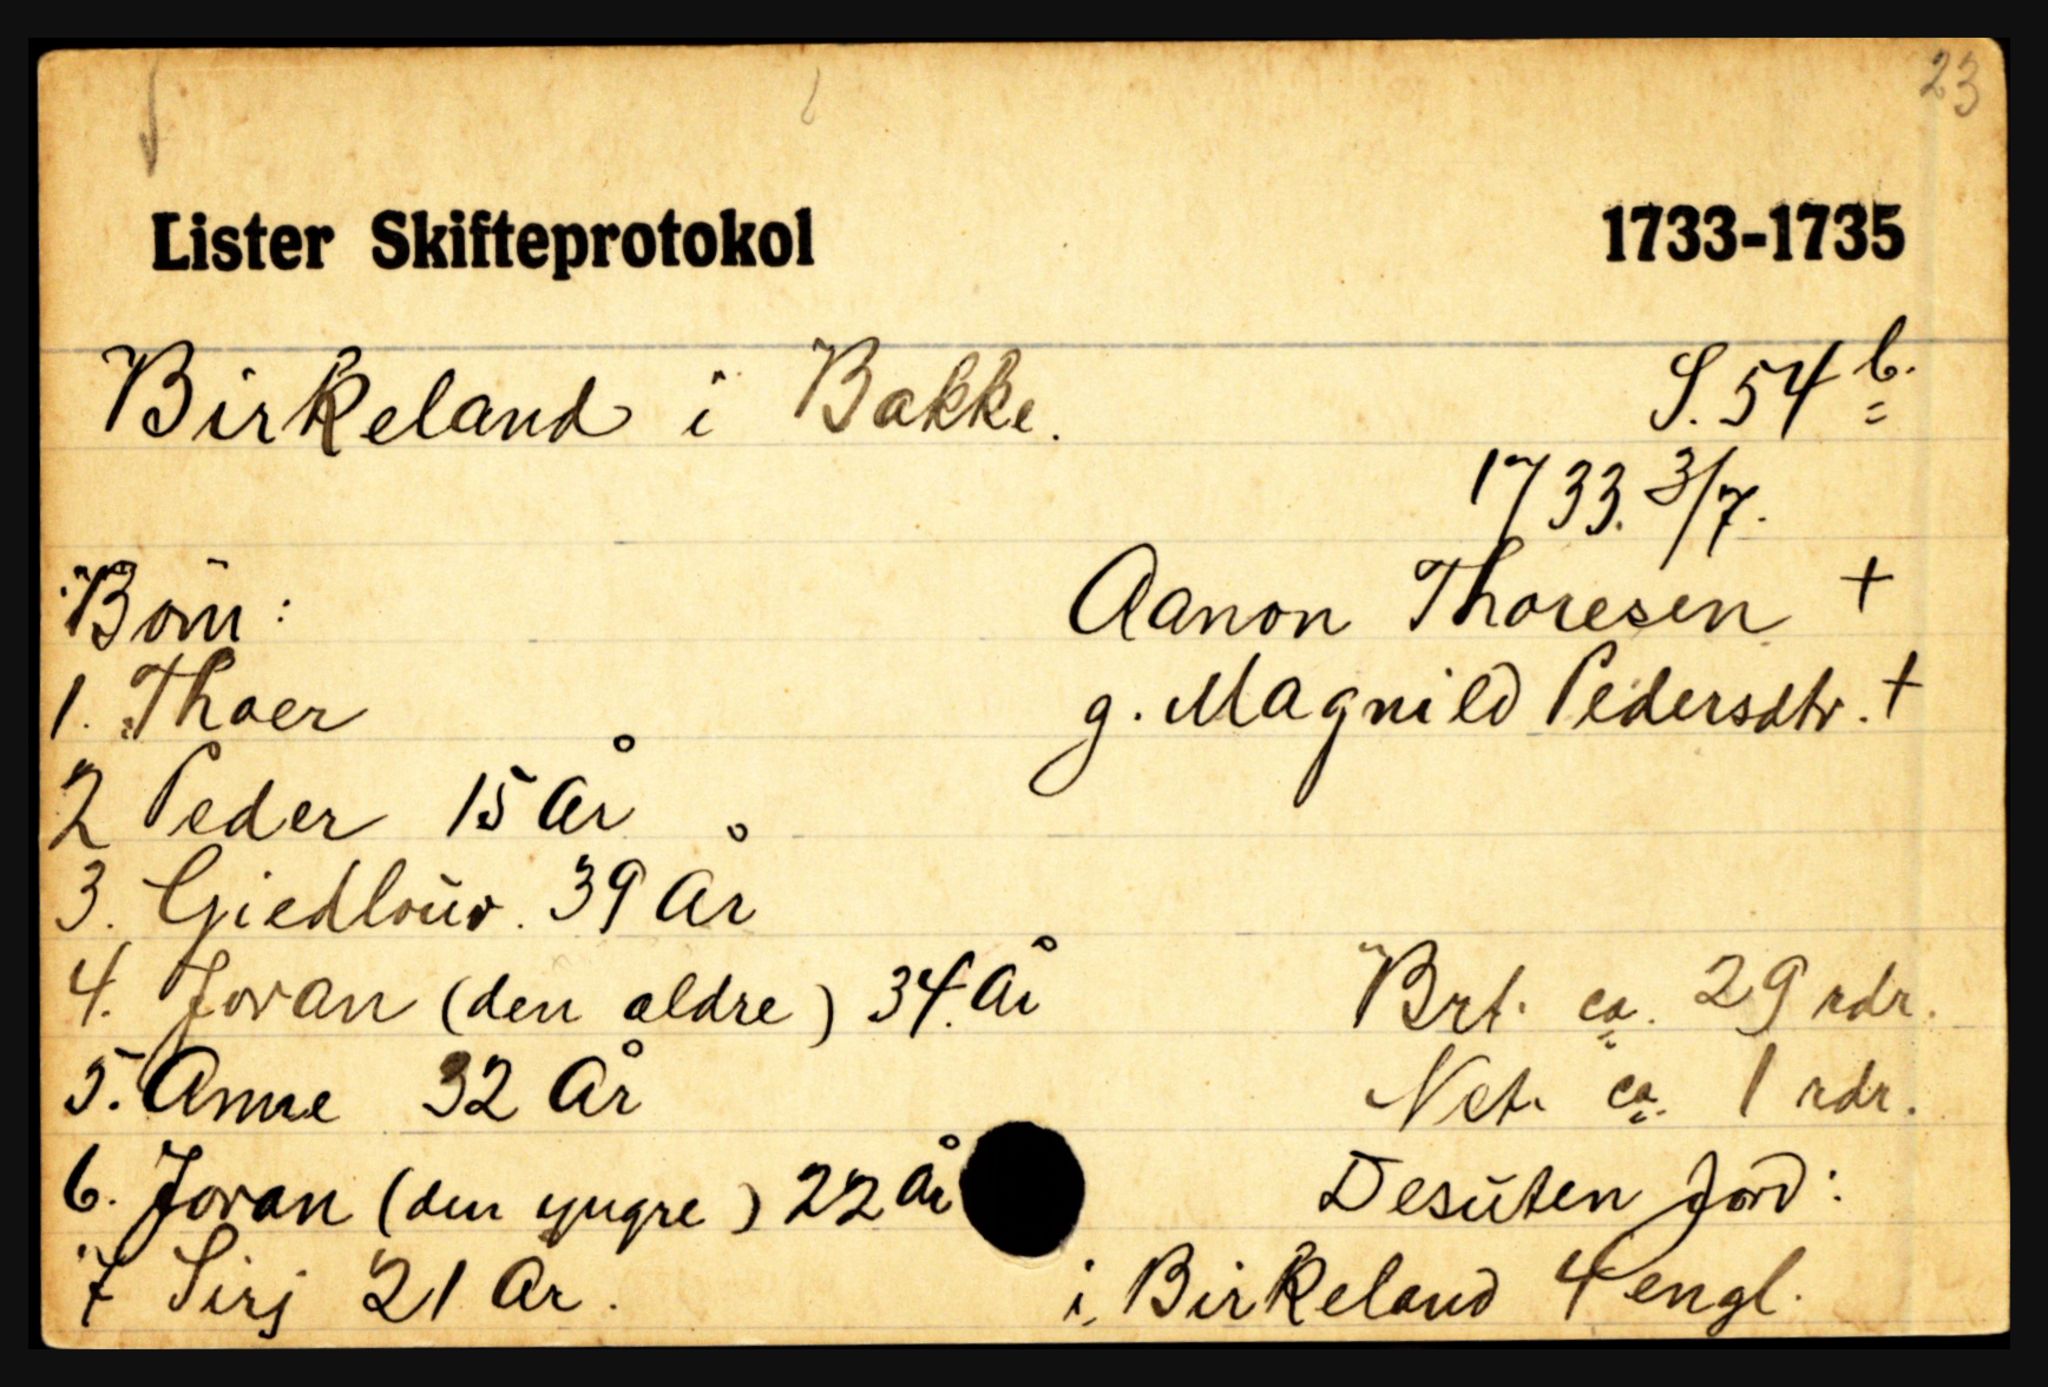 23
Lister Skifteprotokol 1733-1735
Birkeland i Bakke. S. 54 b.
1733. 3/7.
Børn: Aanon Thoresen +
1. Thoer g. Magnild Pedersdtr. +
2 Peder 15 År
3. Giedlouv. 39 År
4. Joran (den ældre) 34. År Brt. ca. 29 rdr.
5. Anne 32 År Net. ca. 1 rdr.
6. Joran (den yngre) 22 År Desuten jord:
7 Sirj 21 År. i Birkeland 4 engl.